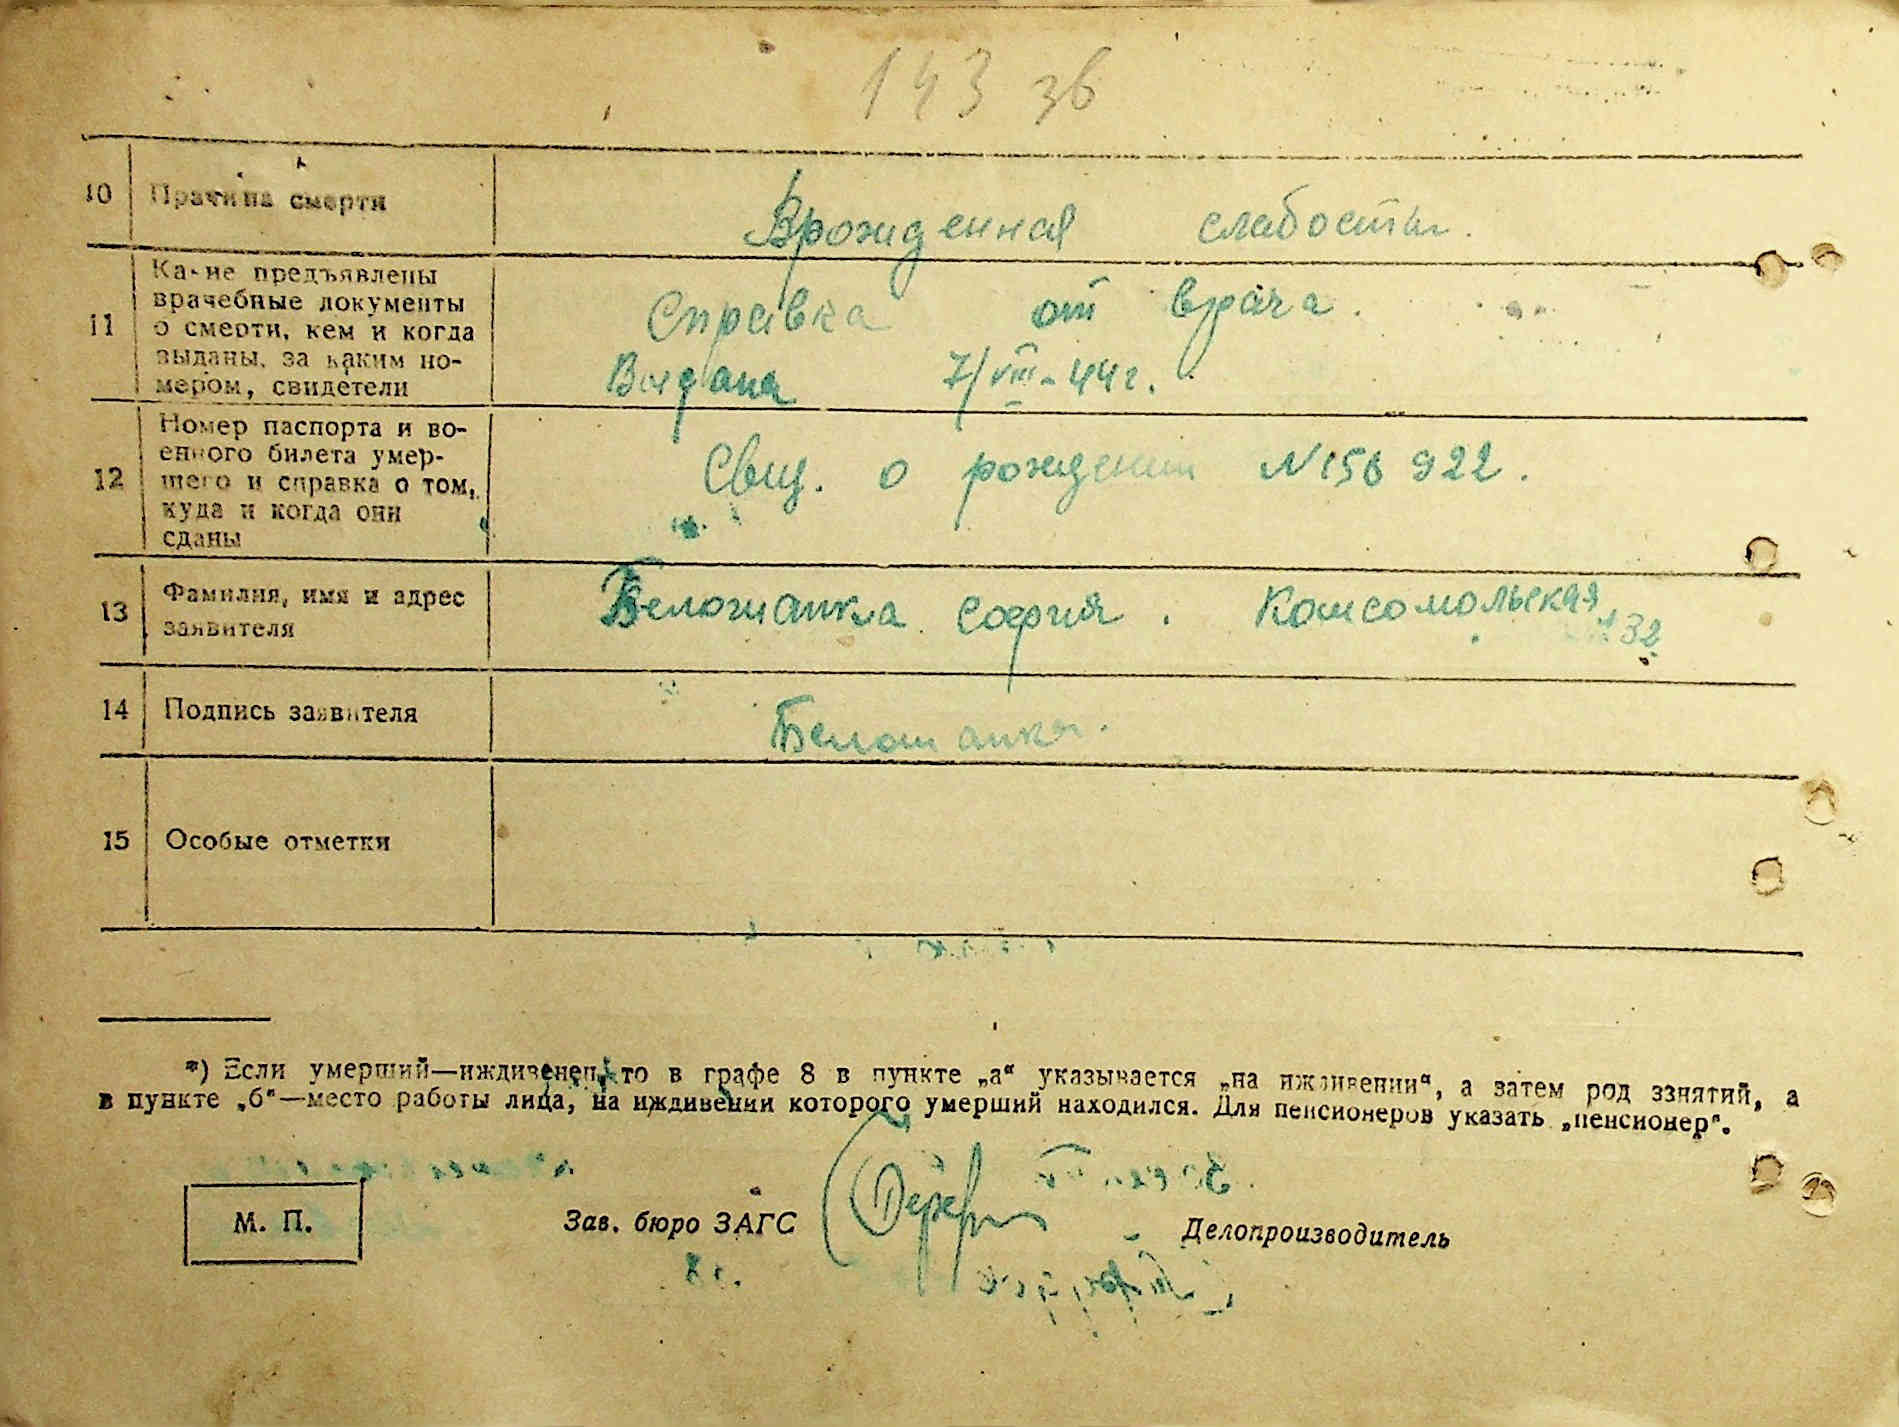 143 зв
10 Причина смерти Врожденная слабость.
11 Какие предъявлены
врачебные документы
о смерти, кем и когда
выданы, за каким но-
мером, свидетели
Справка от врача.
7/VIII-44г.
12 Номер паспорта и во-
енного билета умер-
шего и справка о том,
куда и когда они
сданы
Свид. о рождении N 156 922.
13 Фамилия, имя и адрес
заявителя
Белошапка София. Комсомольская
32
14 Подпись заявителя Белошапка.
15 Особые отметки
*) Если умерший—иждивенец, то в графе 8 в пункте „а“ указывается „на иждивении“, а затем род занятий, а
в пункте „б“—место работы лица, на иждивении которого умерший находился. Для пенсионеров указать „пенсионер“.
М. П. Зав. бюро ЗАГС Делопроизводитель